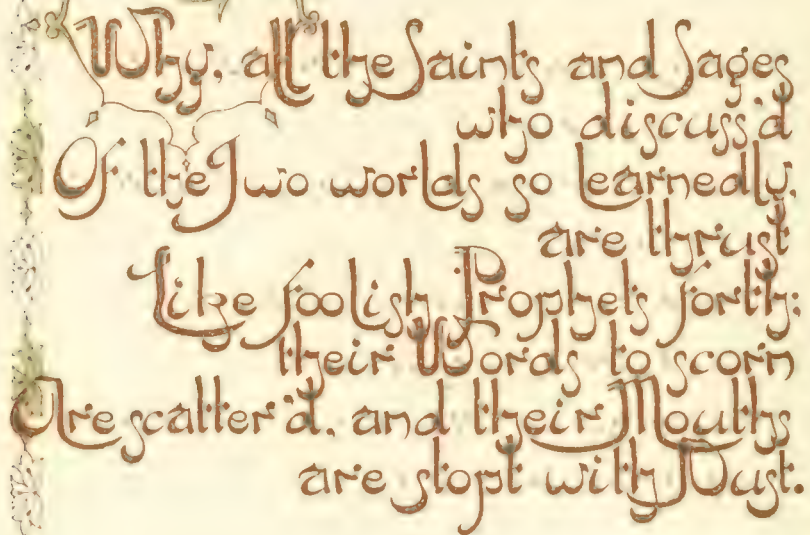 Why, all the Saints and Sages
who discuss'd
Of the Two worlds so learnedly,
are thrust
Like foolish Prophets forth;
their Words to scorn
Are scatter'd, and their Mouths
are stopt with Dust.